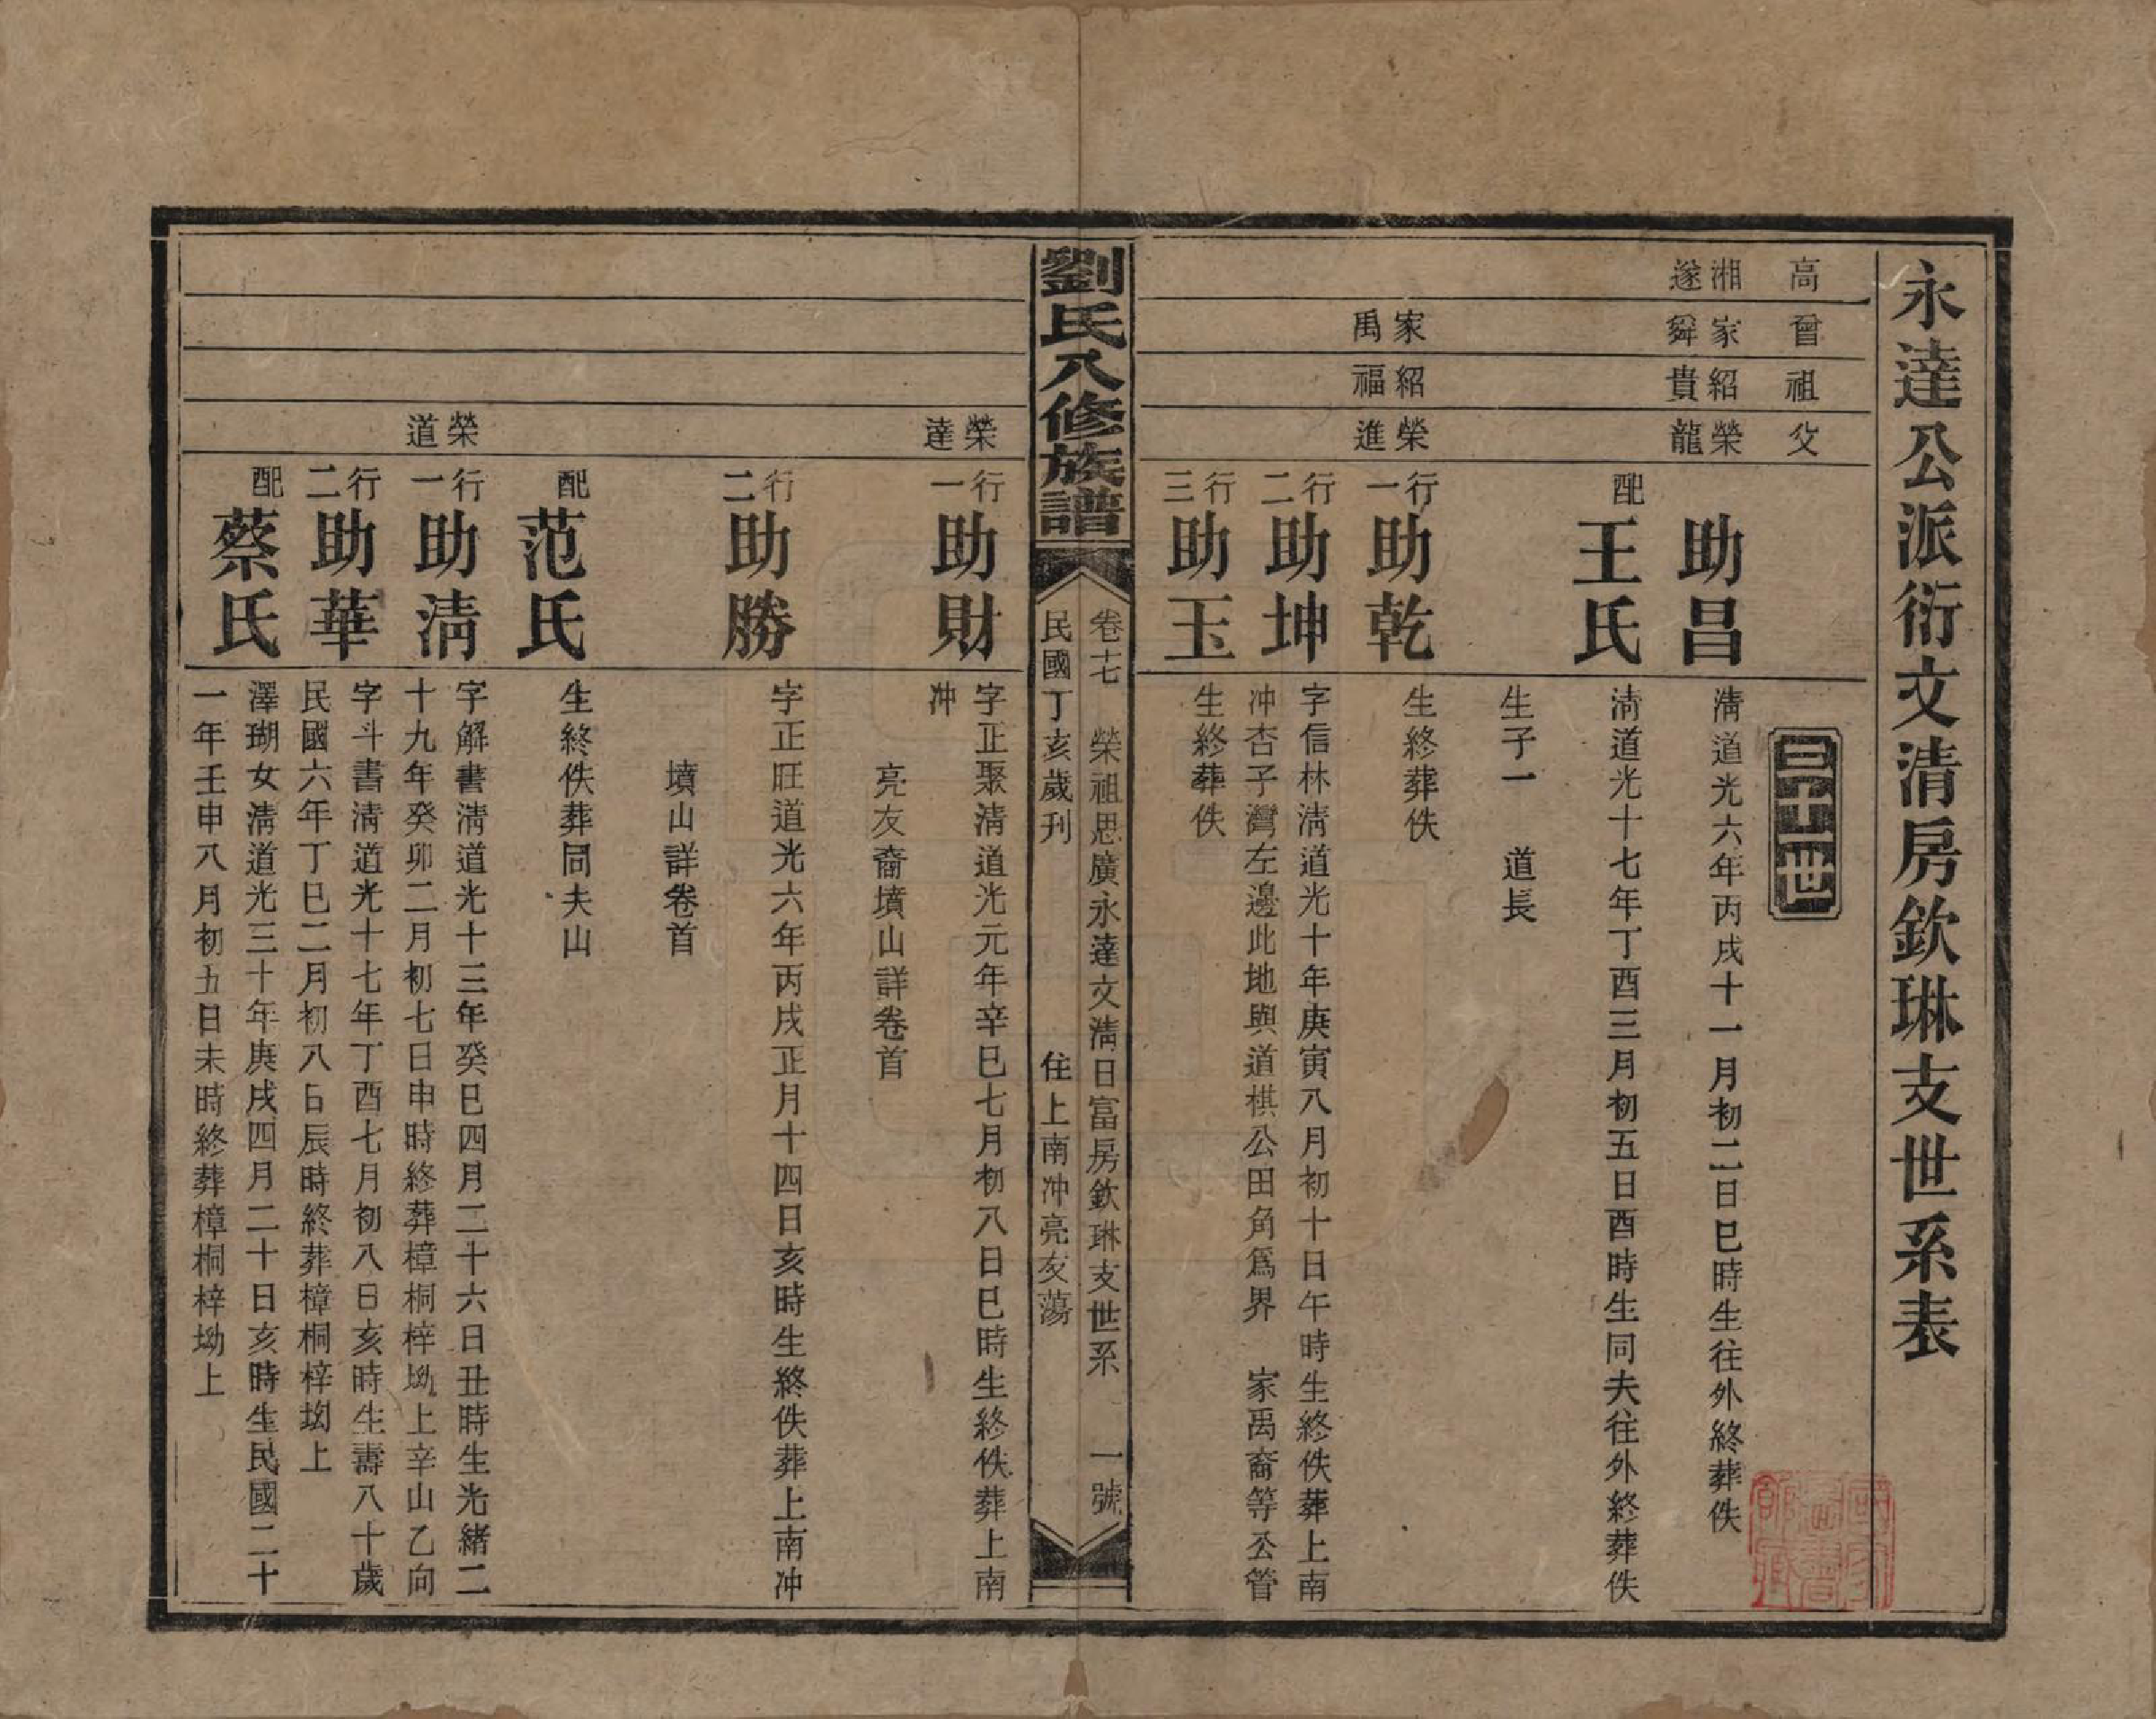 永達公派衍文清房欽琳支世系表
高
曾
祖
父
三十世
湘遂
家舜
紹貴
榮龍
助昌
清道光六年丙戌十一月初二日巳時生往外終葬佚
配
王氏
清道光十七年丁酉三月初五日酉時生同夫往外終葬佚
生子一 道長
家禹
紹福
榮進
行一
助乾
生終葬佚
行二
助坤
字信林清道光十年庚寅八月初十日午時生終佚葬上南
冲杏子灣左邊此地與道棋公田角爲界 家禹裔等公管
行三
助玉
生終葬佚
劉氏八修族譜
卷十七 榮祖思廣永達文清日富房欽琳支世系 一號
民國丁亥歲刊 住上南冲亮友蕩
榮達
行一
助財
字正聚清道光元年辛巳七月初八日巳時生終佚葬上南
冲
亮友裔墳山詳卷首
行二
助勝
字正旺道光六年丙戌正月十四日亥時生終佚葬上南冲
墳山詳卷首
配
范氏
生終佚葬同夫山
榮道
行一
助清
字解書清道光十三年癸巳四月二十六日丑時生光緒二
十九年癸卯二月初七日申時終葬樟桐梓坳上辛山乙向
行二
助華
字斗書清道光十七年丁酉七月初八日亥時生壽八十歲
民國六年丁巳二月初八日辰時終葬樟桐梓坳上
配
蔡氏
澤瑚女清道光三十年庚戌四月二十日亥時生民國二十
一年壬申八月初五日未時終葬樟桐梓坳上